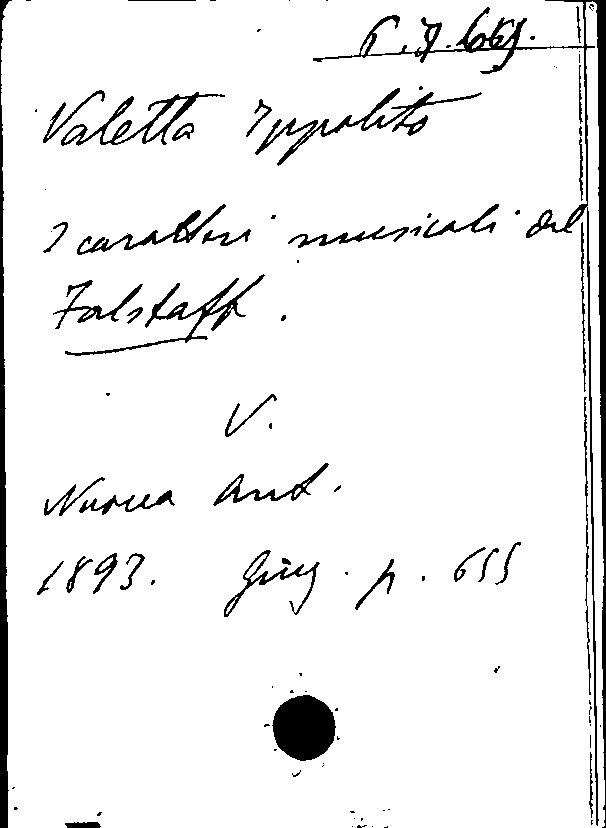 Valetta Ippolito
I caratteri musicali del
Falstaff.
V.
Nuova Ant.
1893. Giug. p. 655